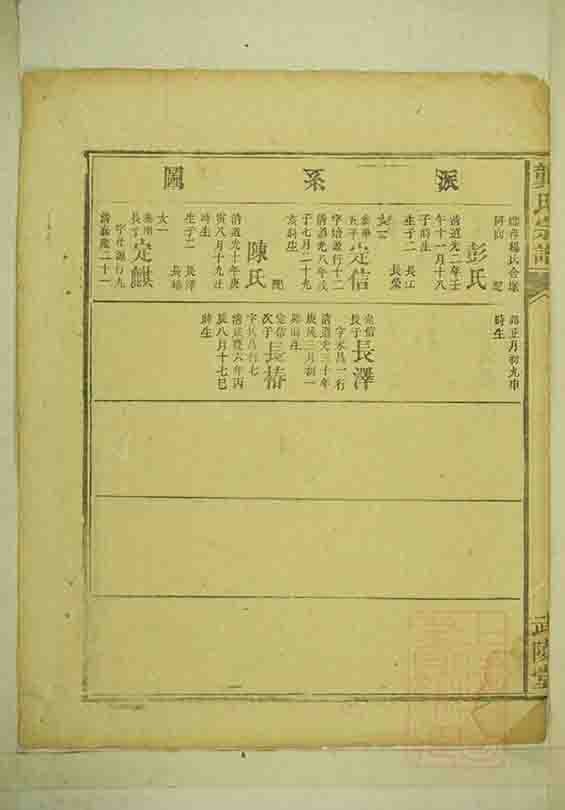 派系圖
氏宗譜
武陵堂
彭氏
清道光二年壬
午十一月十八
子時生
生子二 長江
長榮
定信
字培源行十二
清道光八年戊
子七月二十九
亥時生
配
陳氏
清道光十年庚
寅八月十九
時生
生子二 長澤
長椿
女一
定麒
長子
字
源行九
清嘉慶二十一
年正月初九申
時生
定信
長子
長澤
字永昌一行
清道光三十年
庚戌三月初一
時生
定信
次子
長椿
字
昌行七
清咸豐六年丙
辰八月十七巳
時生